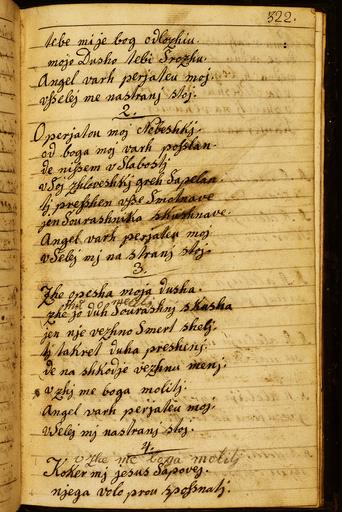 522.
tebe mi je bog odlozhiu.
moje Dusho tebi Srozhu.
Angel varh perjateu moj.
vsselej me nastranj stoj.
2.
O perjatou moj Nebeshkj.
od boga moj varh posslan.
de nissem v slabostj
v Soj zhloveshkj greh Sapelan.
tj presshen vsse Smotnave
jen Sourashnika skushnave.
Angel varh perjateu moj
vSelej mj na stranj stoj.
3.
Zhe opesha moja dusha.
zhe jo duh Sourashnj skusha
jen nje vezhno Smert shelj.
tj takret duha preshenj.
de na shkodje vezhnu menj.
vzhj me boga molitj.
Angel varh perjateu moj.
vSelej mj nastranj stoj.
4.
vzhe me boga molitj
Koker mj jesus Sapovej.
njega volo prou sposnatj.